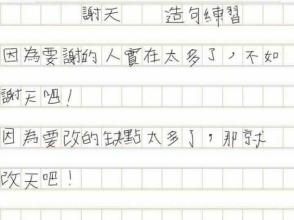 謝天 造句練習
因為要謝的人實在太多了，不如
謝天吧！
因為要改的缺點太多了，那就
改天吧！